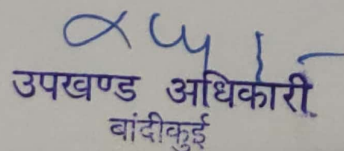 उपखण्ड अधिकारी.
बांदीकुई